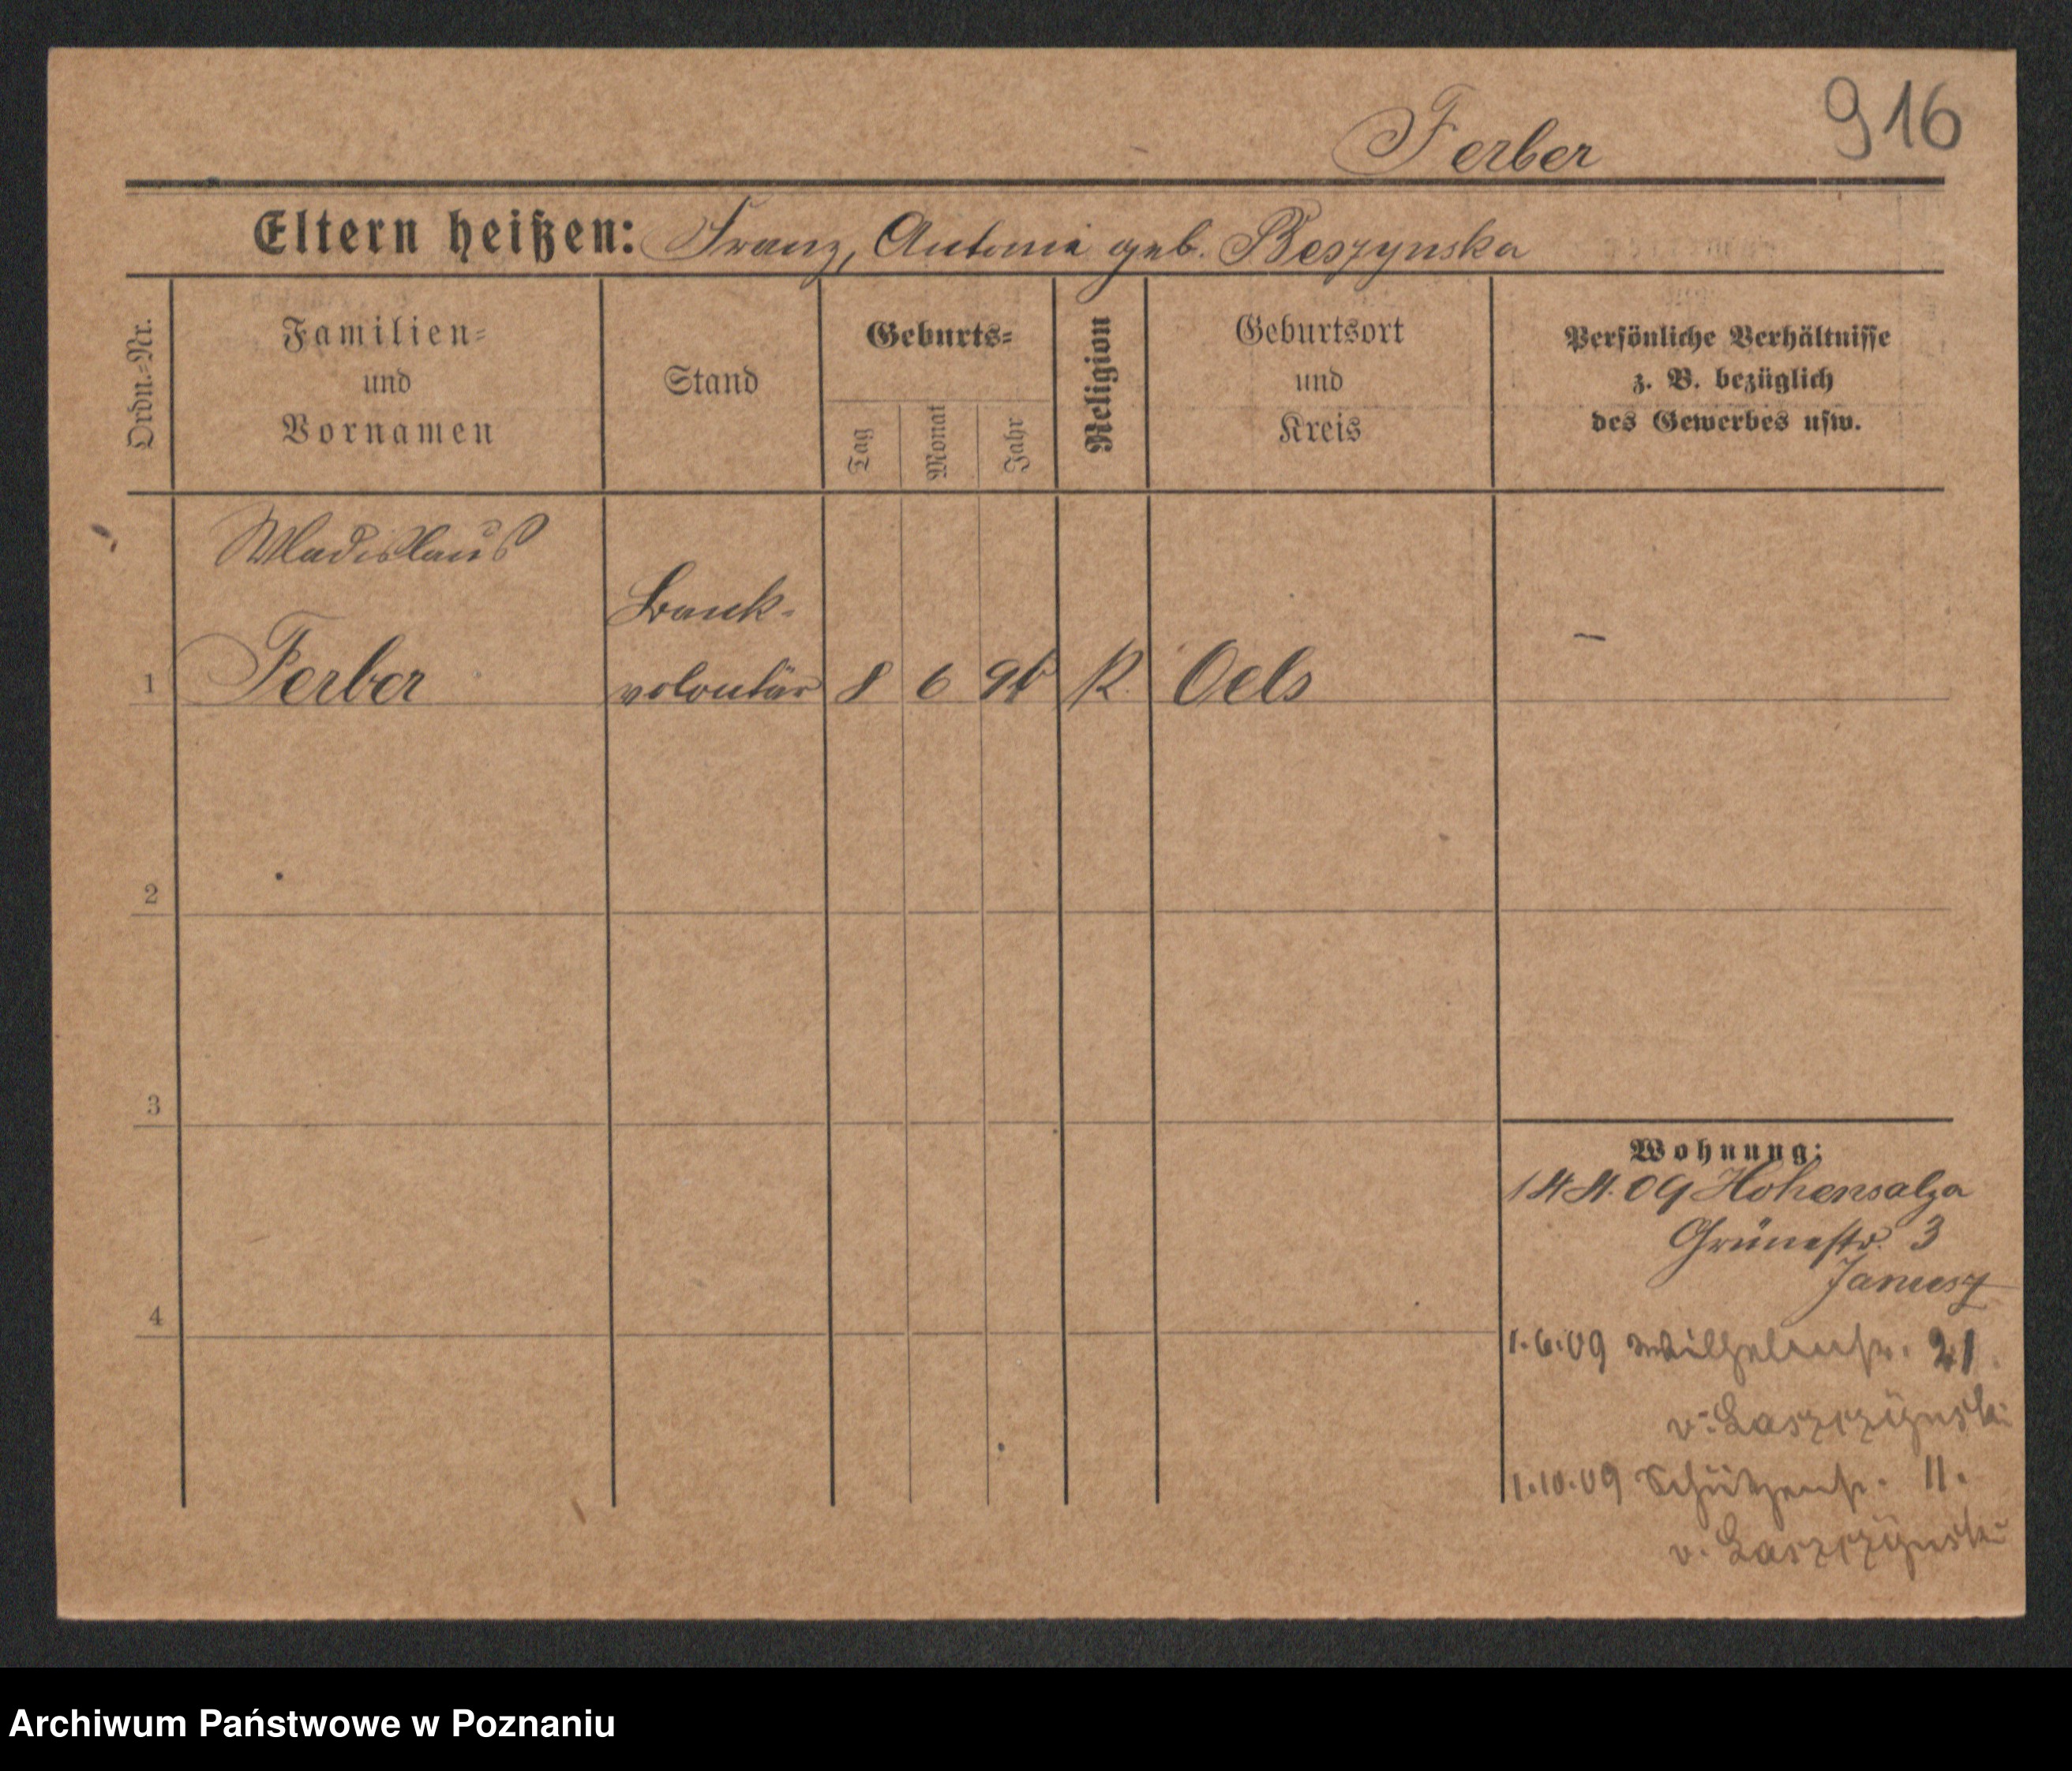 916
Ferber
Eltern heißen: Franz, Antonie geb. Beszynska
Ordn.-Nr.
Familien-
und
Vornamen
Stand
Geburts-
Tag
Monat
Jahr
Religion
Geburtsort
und
Kreis
Persönliche Verhältnisse
z. B. bezüglich
des Gewerbes usw.
Wladislaus
Bank-
1 Ferber volontär 8 6 K. Oels –
2
3
4
Wohnung:
14.4.09 Hohensalza
Grünestr. 3
Janusz
1.6.09 Wilhelmstr. 21.
v. Laszczynski
1.10.09 Schützenstr. 11.
v. Laszczynski
Archiwum Państwowe w Poznaniu